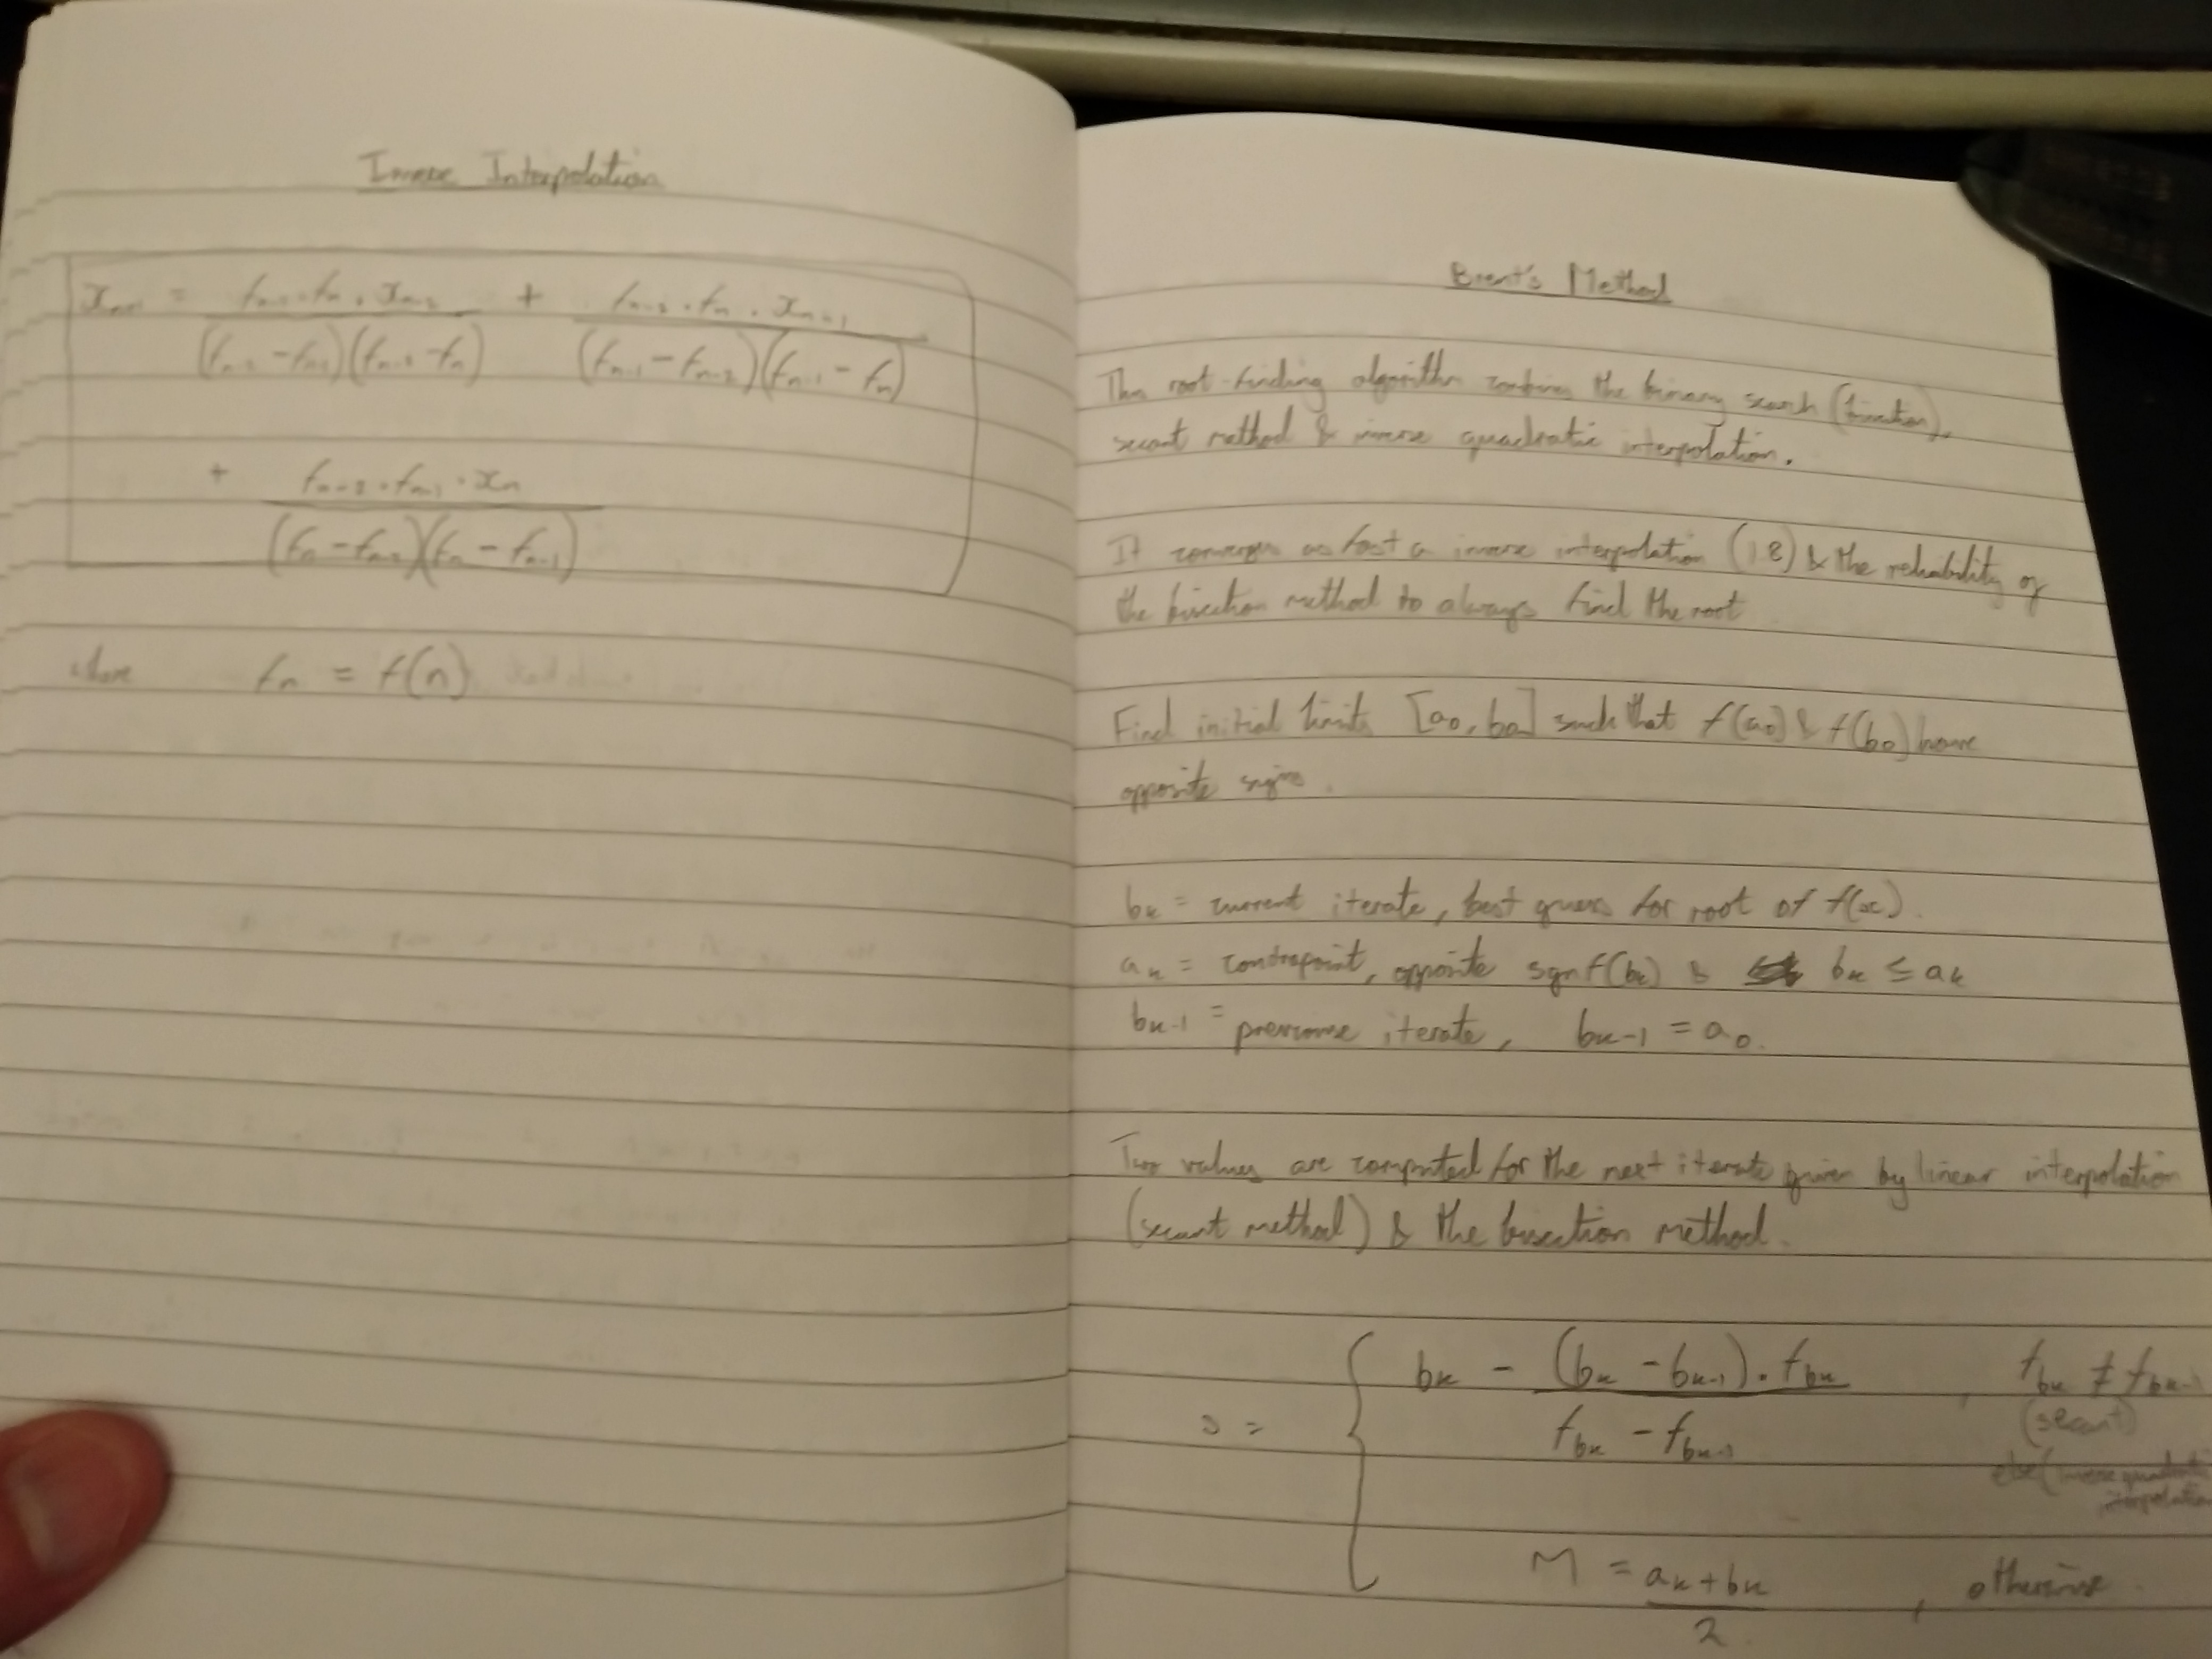 Inverse Interpolation
xₙ₊₁ = fₙ₋₁ · fₙ · xₙ₋₂ / (fₙ₋₂ - fₙ₋₁)(fₙ₋₂ - fₙ) + fₙ₋₂ · fₙ · xₙ₋₁ / (fₙ₋₁ - fₙ₋₂)(fₙ₋₁ - fₙ)
+ fₙ₋₂ · fₙ₋₁ · xₙ / (fₙ - fₙ₋₂)(fₙ - fₙ₋₁)
where fₙ = f(n)
Brent's Method
This root-finding algorithm combines the binary search (bisection),
secant method & inverse quadratic interpolation.
It converges as fast a inverse interpolation (1.8) & the reliability of
the bisection method to always find the root
Find initial limits [a₀, b₀] such that f(a₀) & f(b₀) have
opposite signs.
bₖ = current iterate, best guess for root of f(x).
aₖ = contrapoint, opposite sgn f(bₖ) & bₖ ≤ aₖ
bₖ₋₁ = previous iterate, bₖ₋₁ = a₀.
Two values are computed for the next iterate given by linear interpolation
(secant method) & the bisection method.
s = { bₖ - (bₖ - bₖ₋₁) · f_bₖ / f_bₖ - f_bₖ₋₁ , f_bₖ ≠ f_bₖ₋₁
(secant)
else (inverse quadratic
interpolation
M = aₖ + bₖ / 2 , otherwise.